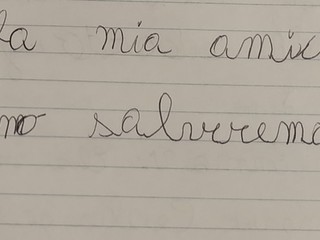 la mia amic
no salveremo